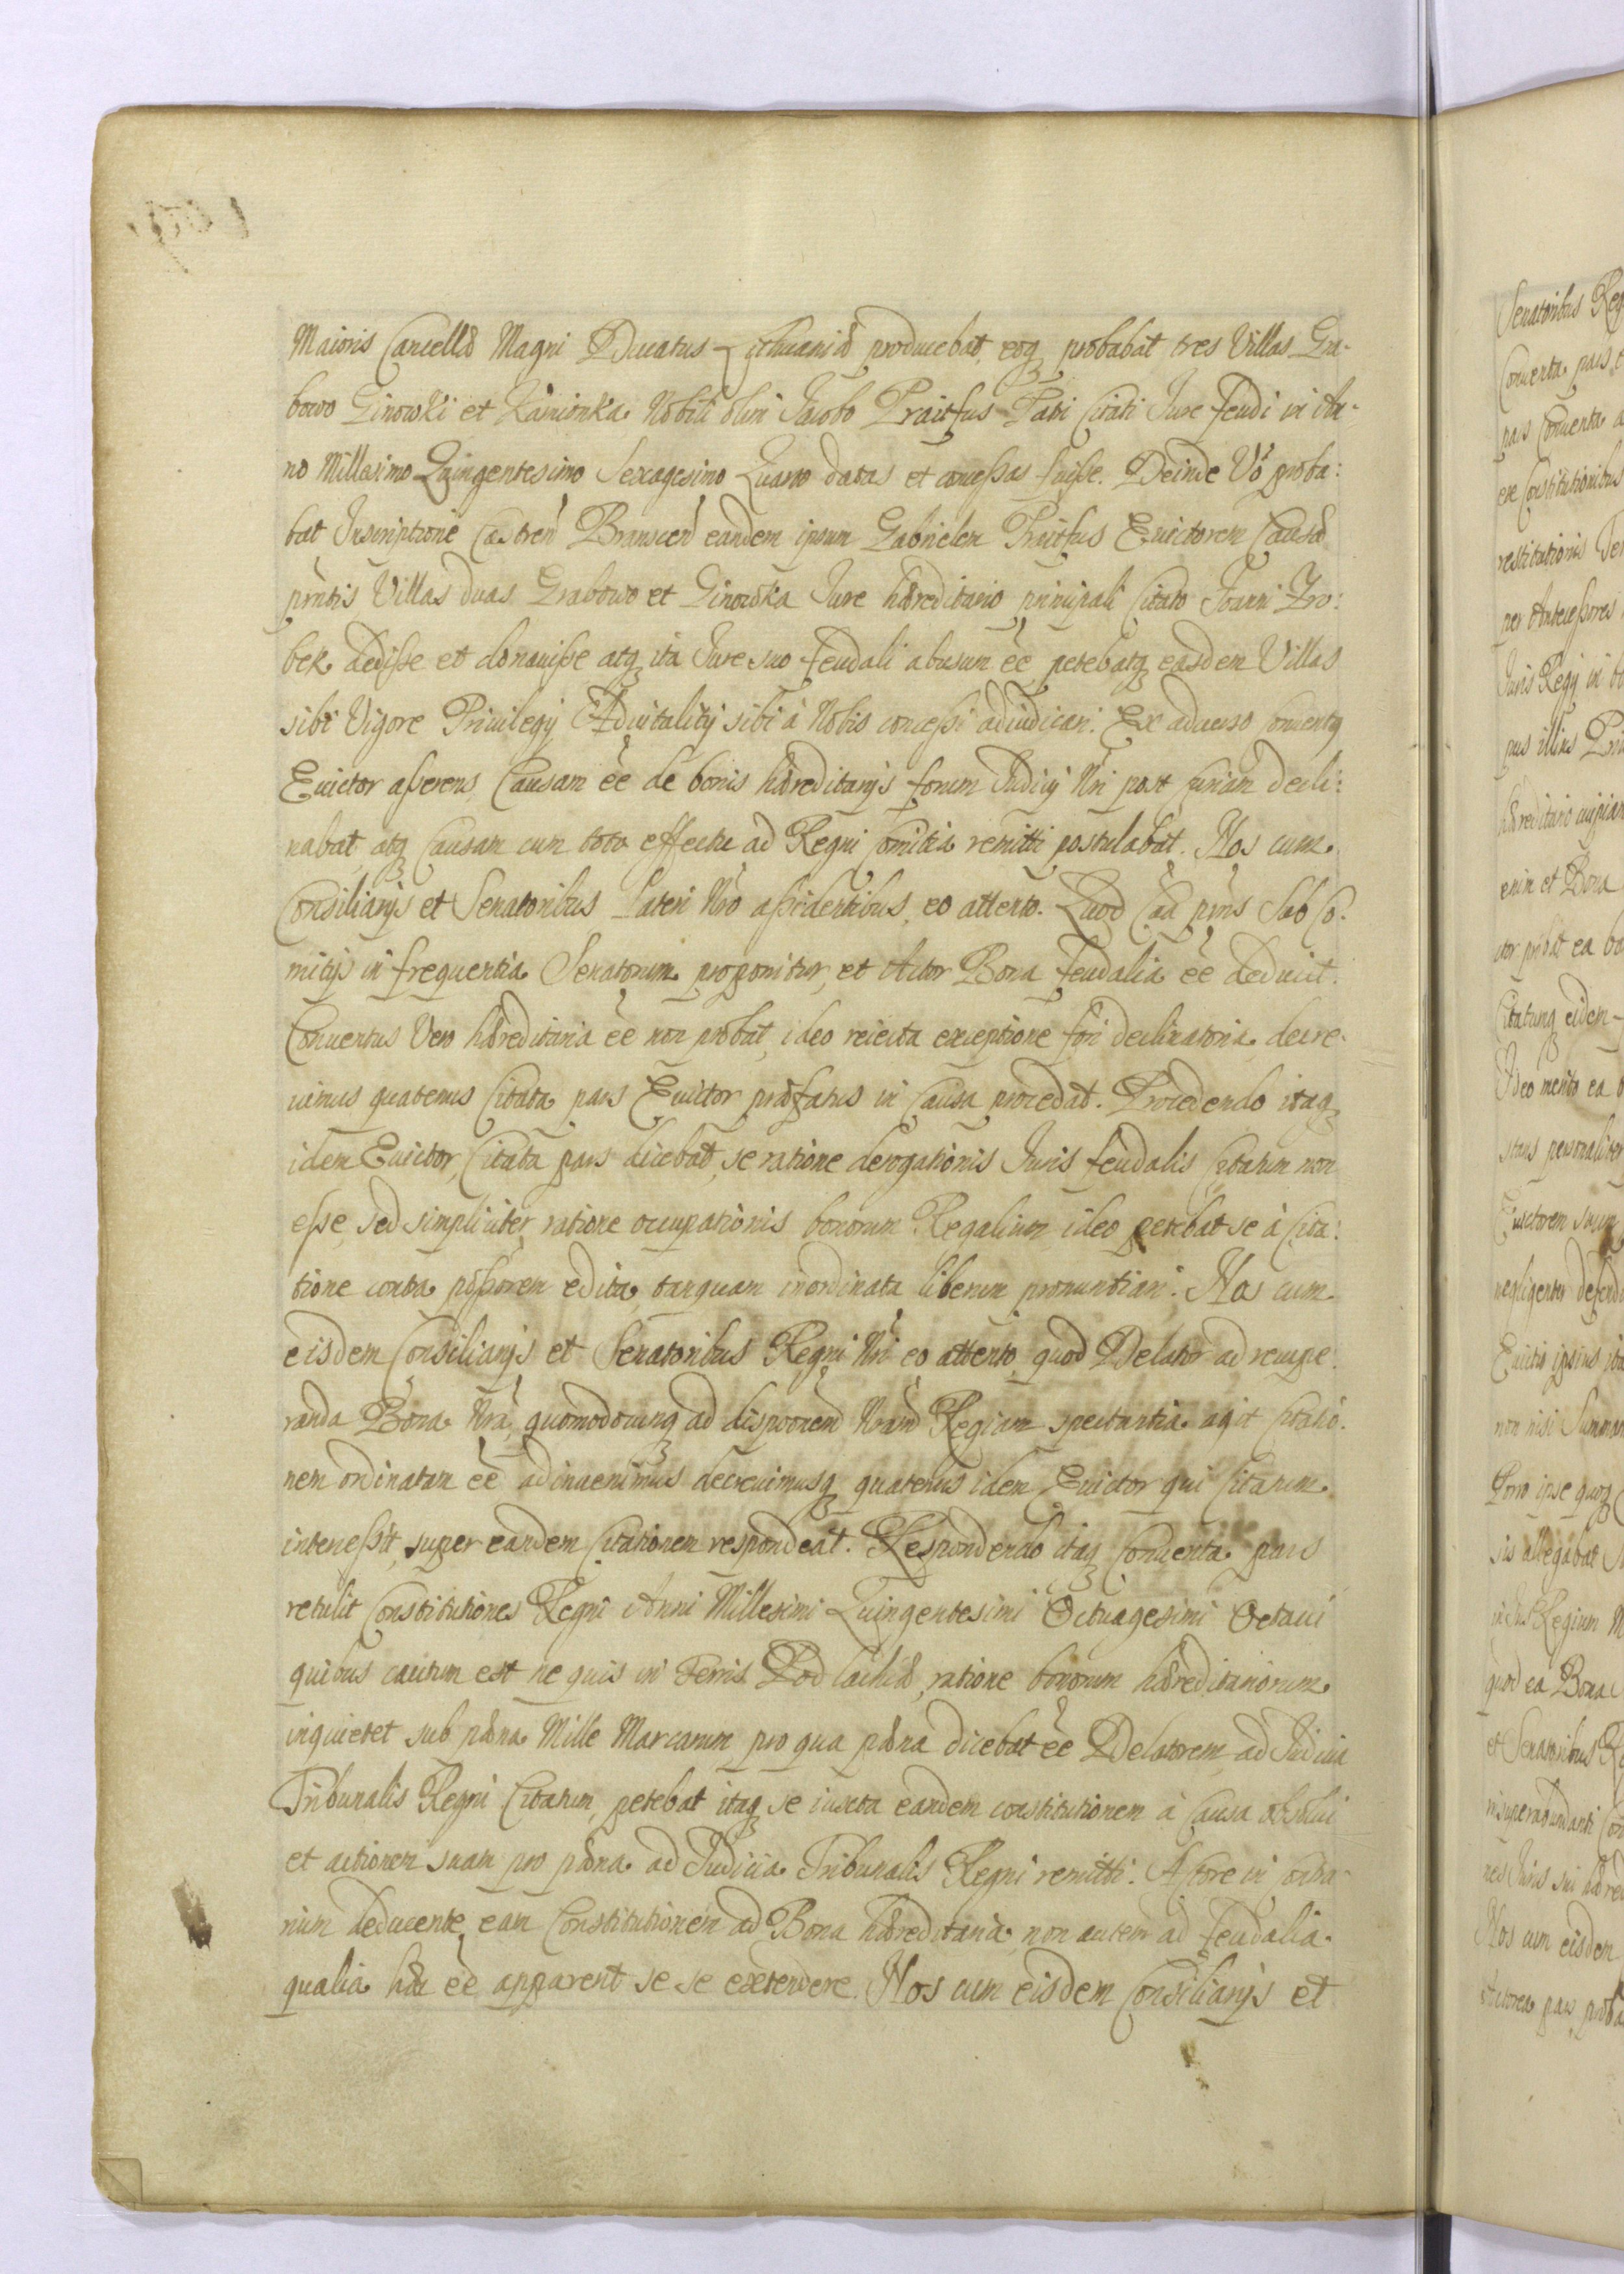 Maioris Cancellæ Magni Ducatus Lithuaniæ producebat, eoq probabat tres Villas Gra-
bowo Ginowki et Kamionka Nobili olim Jacobo Praitfus Patri Citati Jure feudi in An-
no Millesimo Quingentesimo Sexagesimo Quarto datas et concessas fuisse. Deinde Vo proba:
bat Inscriptione Castren Branscen eandem ipsum Gabrielem Praitfus Euictorem Causæ
pntis Villas duas Grabowo et Ginowka Jure hæreditario principali Citato Joanni Zro:
bek dedisse et donauisse atq ita Jure suo feudali abusum ee petebatq easdem Villas
sibi Vigore Priuilegij Aduitalitij sibi à Nobis concessi adiudicari. Ex aduerso Conuentq
Euictor asserens Causam ee de bonis hæreditarijs forum Iudicij Nri post Curiam decli:
nabat, atq Causam cum toto effectu ad Regni Comitia remitti postulabat. Nos cum
Consiliarijs et Senatoribus Lateri Nro assidentibus, eo attento. Quod Caa pns Sub Co-
mitijs in frequentia Senatorum proponitur, et Actor Bona feudalia ee deducit.
Conuentus Vero hæreditaria ee non probat, ideo reiecta exceptione fori declinatoria decre-
uimus quatenus Citata pars Euictor præfatus in Causa procedat. Procedendo itaq
idem Euictor, Citata pars dicebat, se ratione derogationis Juris feudalis Citatum non
esse, sed simpliciter ratione occupationis bonorum Regalium ideo petebat se à Cita:
tione contra possorem edita, tanquam inordinata liberum pronuntiari. Nos cum
eisdem Consiliarijs et Senatoribus Regni Nri eo attento quod Delator ad recupe:
randa Bona Nra, quomodocunq ad disponem Nram Regiam spectantia agit Citatio-
nem ordinatam ee adinuenimus decreuimusq quatenus idem Euictor qui Citatum
intercessit, super eandem Citationem respondeat. Respondendo itaq Conuenta pars
retulit Constitutiones Regni Anni Millesimi Quingentesimi Octuagesimi Octaui
quibus cautum est ne quis in Terris Podlachiæ, ratione bonorum hæreditariorum
inquietet sub pæna Mille Marcarum, pro qua pæna dicebat ee Delatorem ad Iudicia
Tribunalis Regni Citatum, petebat itaq se iuxta eandem constitutionem à Causa absolui
et actionem suam pro pæna ad Iudicia Tribunalis Regni remitti. Actore in contra-
rium deducente, eam Constitutionem ad Bona hæreditaria, non autem ad feudalia
qualia hæc ee apparent se se extendere. Nos cum eisdem Consiliarijs et